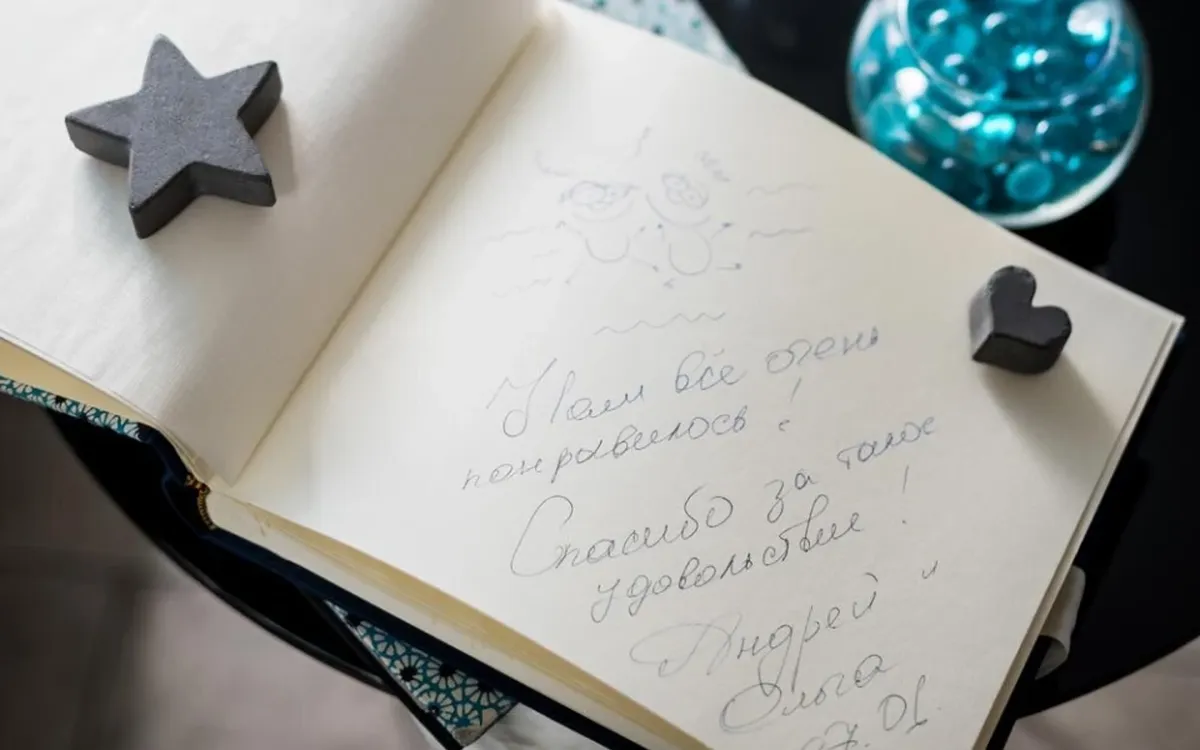 Нам все очень
понравилось!
Спасибо за такое
удовольствие!
Андрей и
Ольга
07.01.